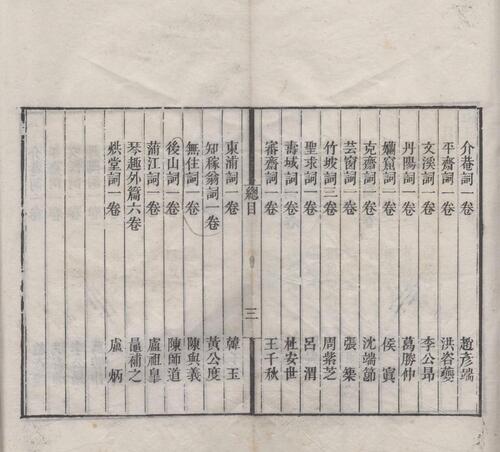 介菴詞一卷 趙彥端
平齋詞一卷 洪咨夔
文溪詞一卷 李公昂
丹陽詞一卷 葛勝仲
孏窟詞一卷 侯寘
克齋詞一卷 沈端節
芸窗詞一卷 張榘
竹坡詞三卷 周紫芝
聖求詞一卷 呂渭
壽域詞一卷 杜安世
審齋詞一卷 王千秋
總目 三
東浦詞一卷 韓玉
知稼翁詞一卷 黃公度
無住詞一卷 陳與義
後山詞一卷 陳師道
蒲江詞一卷 盧祖皋
琴趣外篇六卷 晁補之
烘堂詞一卷 盧炳